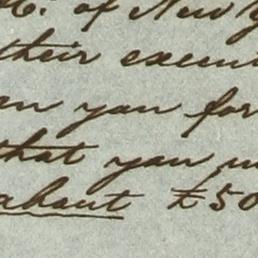 of New
their
en you for
that you
about £50